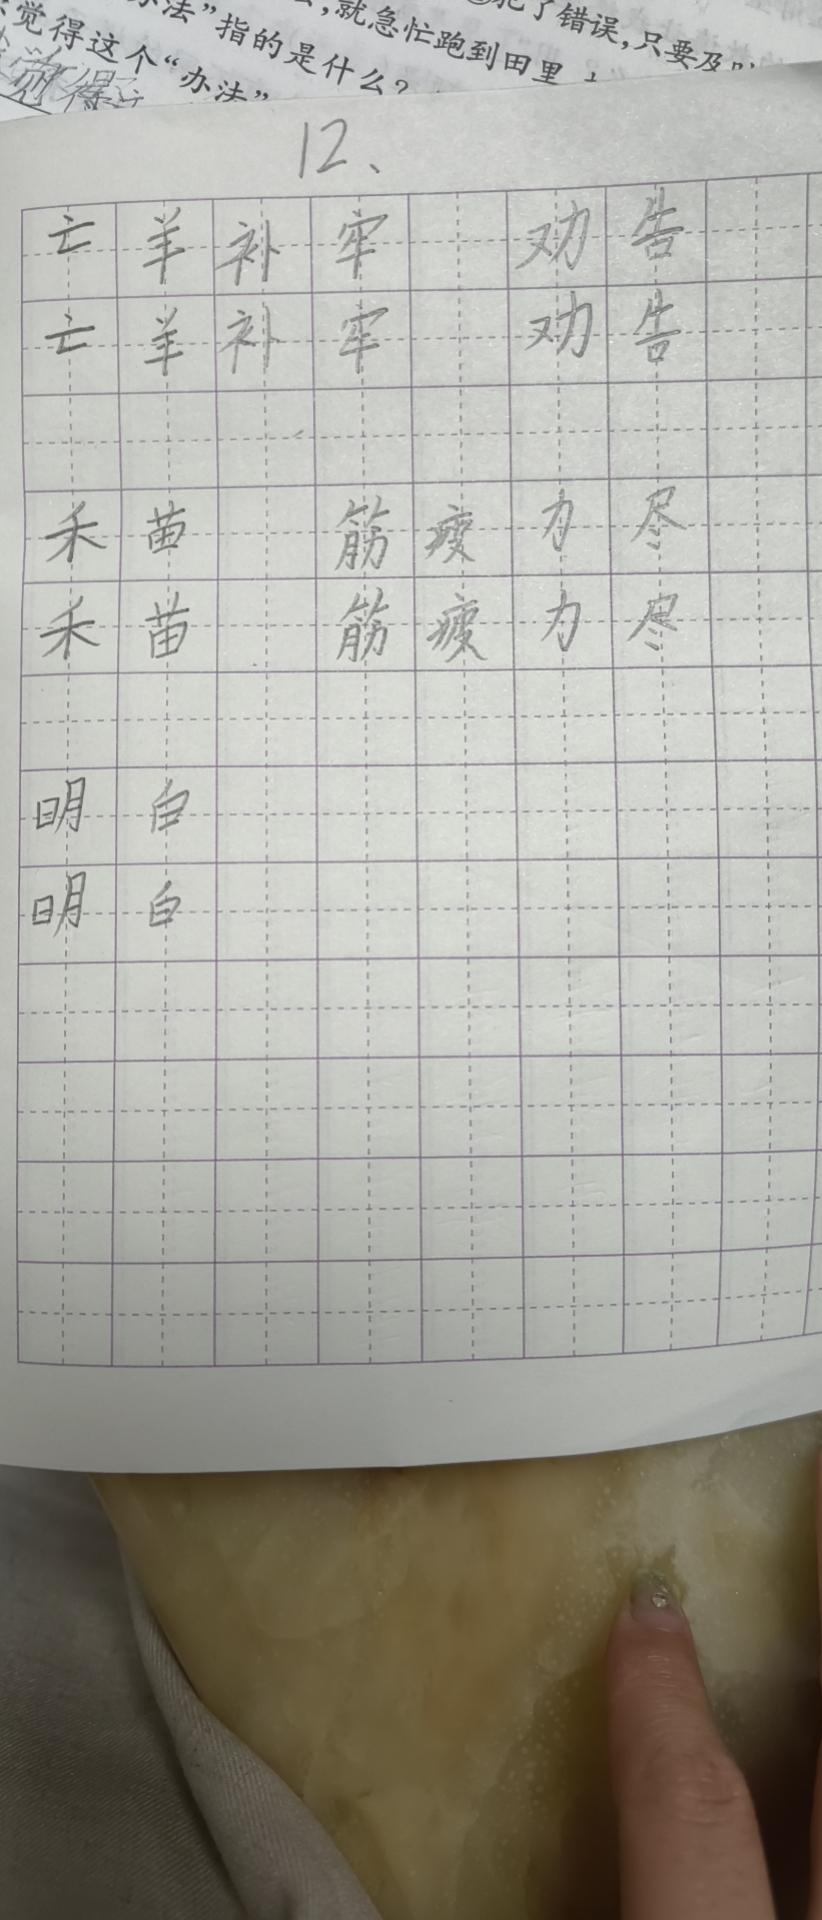 办法”
,就急忙跑到田里
犯了错误,只要及
觉得这个“办法”指的是什么?
觉得
12、
亡羊补牢 劝告
亡羊补牢 劝告
禾苗 筋疲力尽
禾苗 筋疲力尽
明白
明白